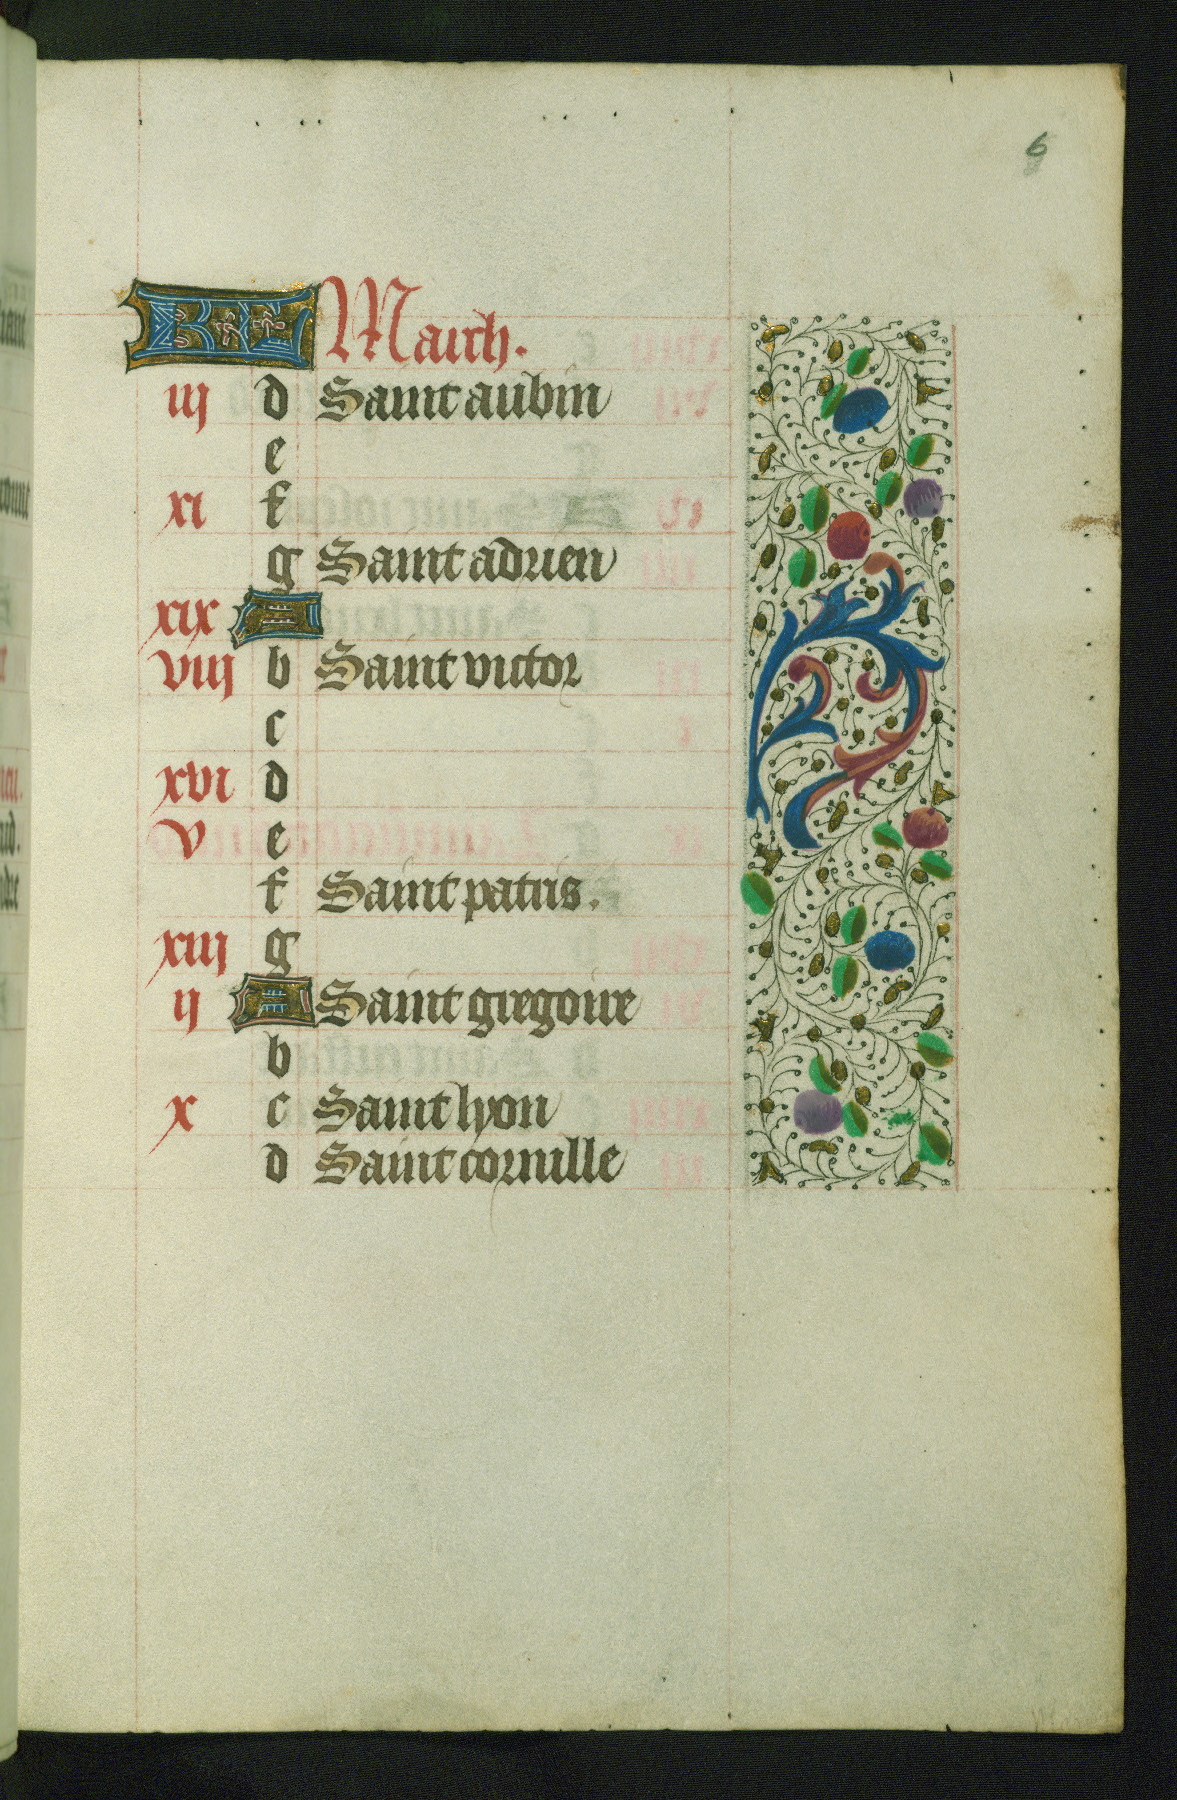 6
KL March.
iij d Saint aubin
e
xi f
g Saint adrien
xix A
viij b Saint victor
c
xvi d
v e
f Saint patris.
xiij g
ij A Saint gregoire
b
x c Saint lyon
d Saint cornille